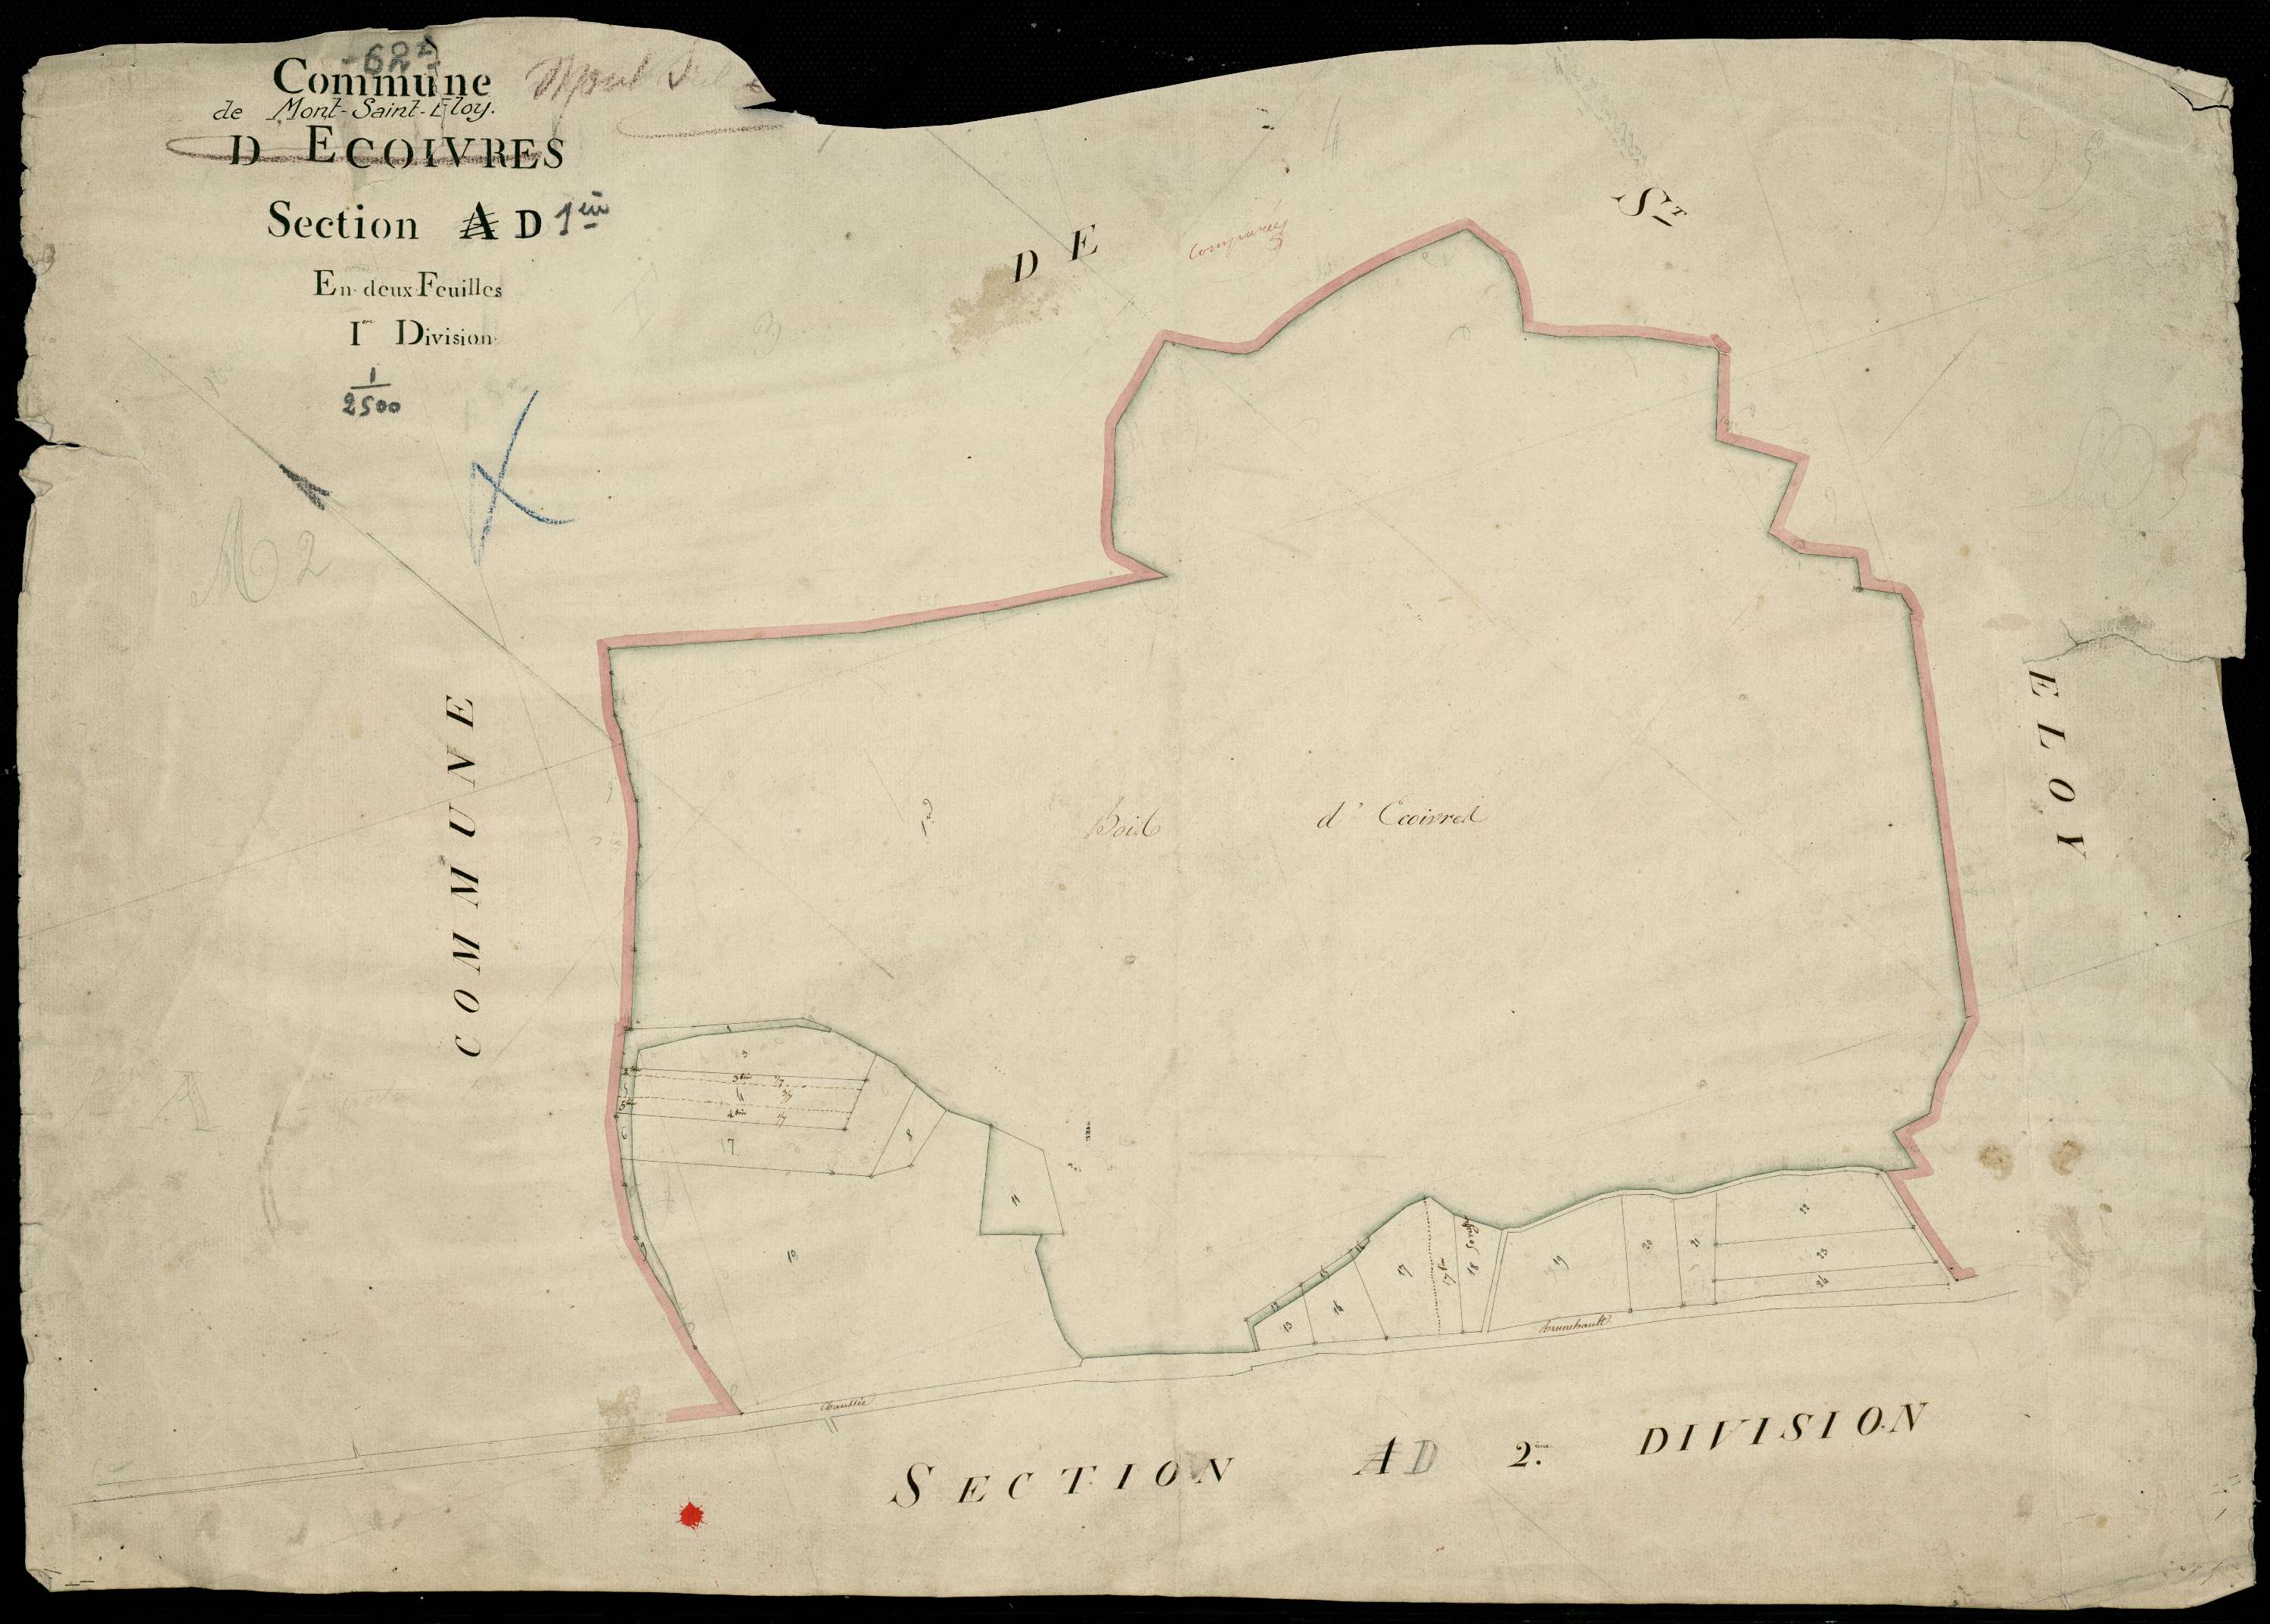 Commune
de Mont-Saint-Eloy.
D ECOIVRES
Section A D 1ère
En deux Feuilles
Ire Division
1
2500
COMMUNE
DE
St
ELOY
comparée
Bois d'Ecoivres
1
3
3bis
4
4bis
5
5bis
6
17
8
9
10
11
12
13
14
15
16
17
17bis
18
19
20
21
22
23
24
Chaussée
Brunehault
SECTION A D 2.me DIVISION
M 2